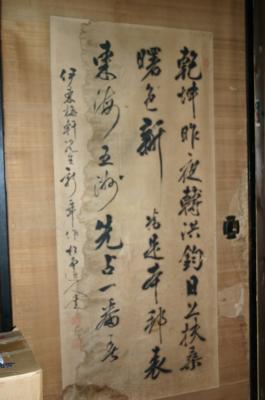 乾坤昨夜轉洪鈞日上扶桑
曙色新 為是本邦表
東海五洲先占一番春
伊東梅軒先生新年作